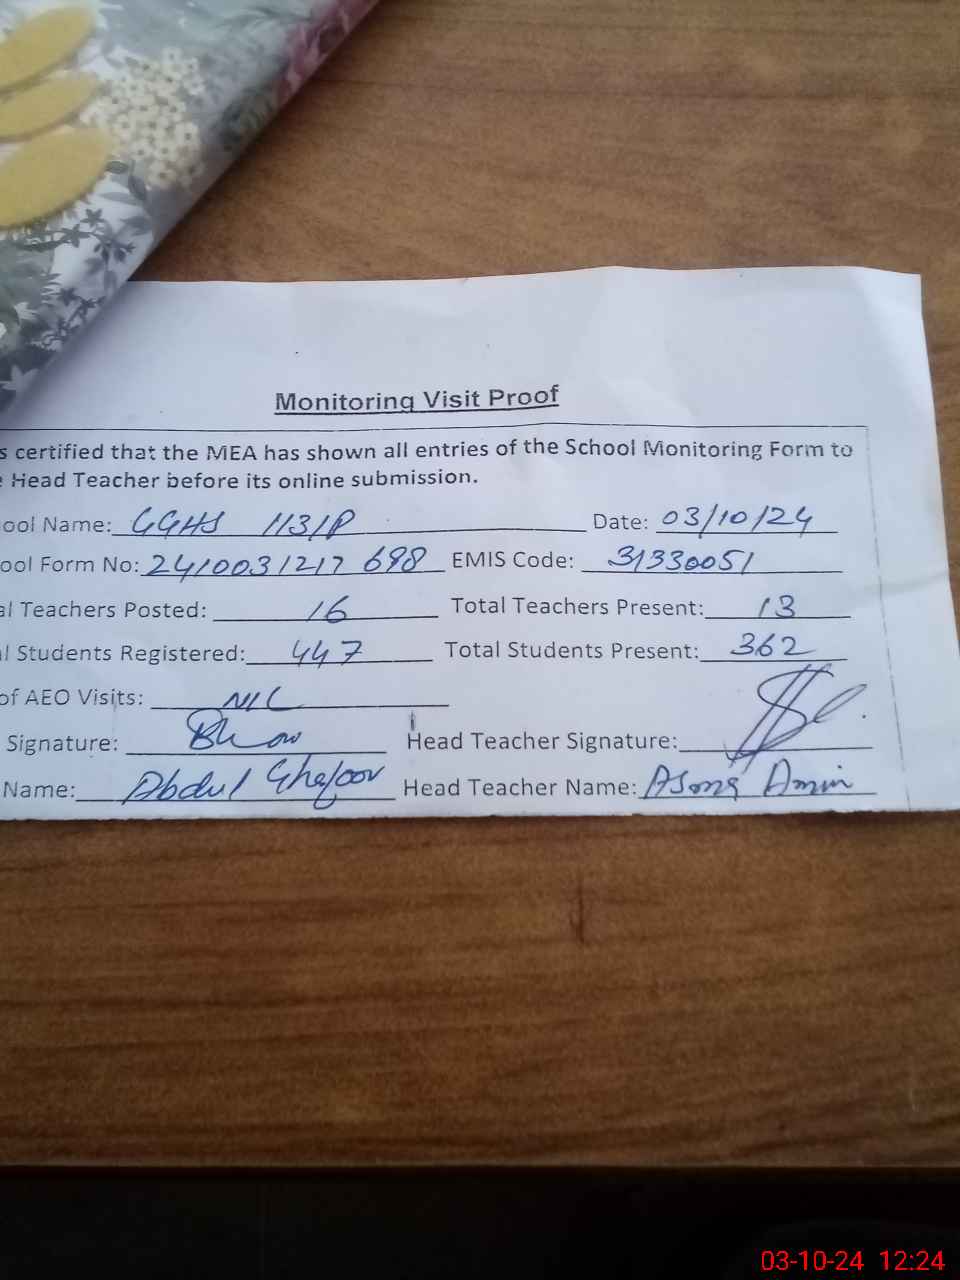 Monitoring Visit Proof
s certified that the MEA has shown all entries of the School Monitoring Form to
e Head Teacher before its online submission.
ool Name: GGHS 113/P Date: 03/10/24
ool Form No: 2410031217698 EMIS Code: 31330051
al Teachers Posted: 16 Total Teachers Present: 13
l Students Registered: 447 Total Students Present: 362
of AEO Visits: NIL
Signature: Head Teacher Signature:
Name: Abdul Ghafoor Head Teacher Name: Asma Amin
03-10-24 12:24